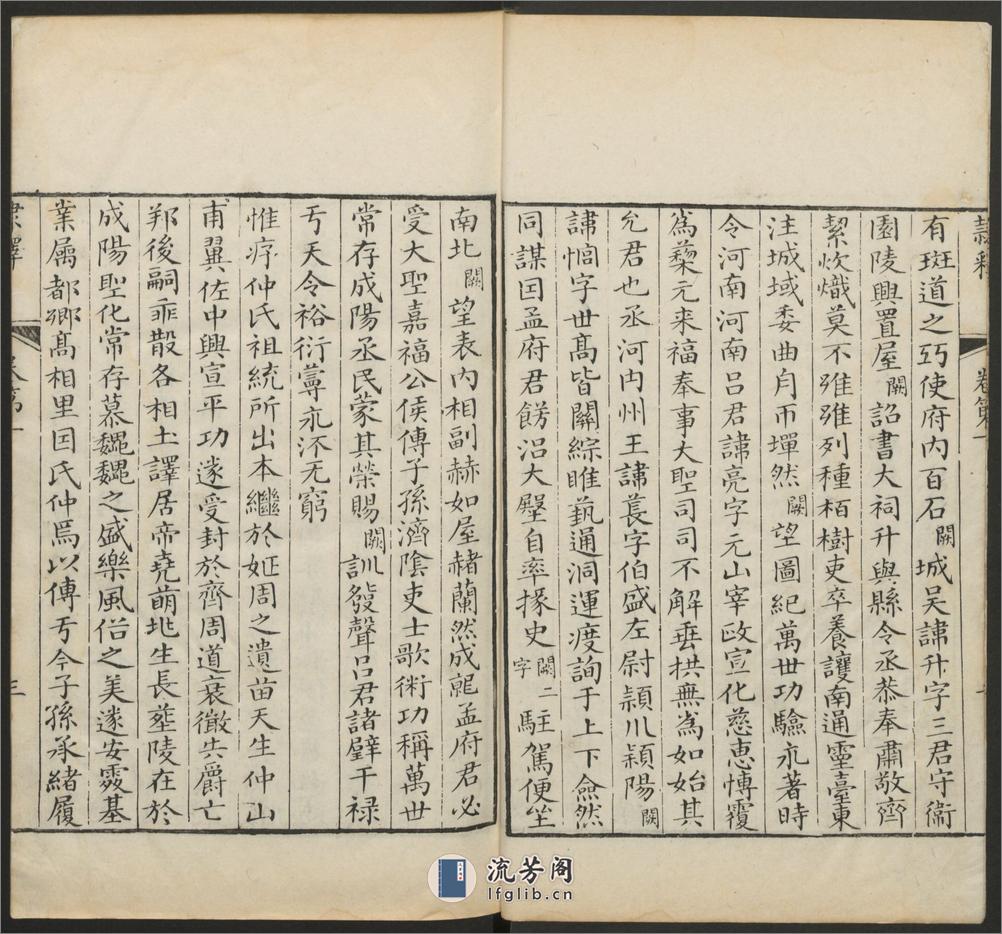 隷釋 卷第一
有斑道之巧使府内百石闕城吴諱升字三君守衞
園陵興置屋闕詔書大祠升與縣令丞恭奉肅敬齊
絜炊熾莫不雖雖列種栢樹吏卒養護南通靈臺東
注城域委曲舟帀墠然闕望圖紀萬世功驗永著時
令河南河南吕君諱亮字元山宰政宣化慈惠博覆
爲蔾元来福奉事大聖司司不解垂拱無爲如始其
允君也丞河内州王諱萇字伯盛左尉潁川潁陽闕
諱惂字世髙皆闗綜睢蓺通洞運度詢于上下僉然
同謀囙孟府君餝治大壂自率掾史闕二字駐駕便坐
南北闕望表内相副赫如屋赭蘭然成𩲃孟府君必
受大聖嘉福公侯傳子孫濟陰吏士歌術功稱萬世
常存成陽丞民蒙其榮賜闕訓發聲吕君諸㙺干禄
亐天令裕衍蕁永沠无窮
惟㳯仲氏祖統所出本繼於姬周之遺苗天生仲山
甫翼佐中興宣平功遂受封於齊周道衰微失爵亡
邦後嗣乖散各相土譯居帝堯萌兆生長塟陵在於
成陽聖化常存慕巍巍之盛樂風俗之美遂安處基
業属都鄉髙相里囙氏仲焉以傳亐今子孫承緒履
隷釋 卷第一 三
流芳阁
lfglib.cn